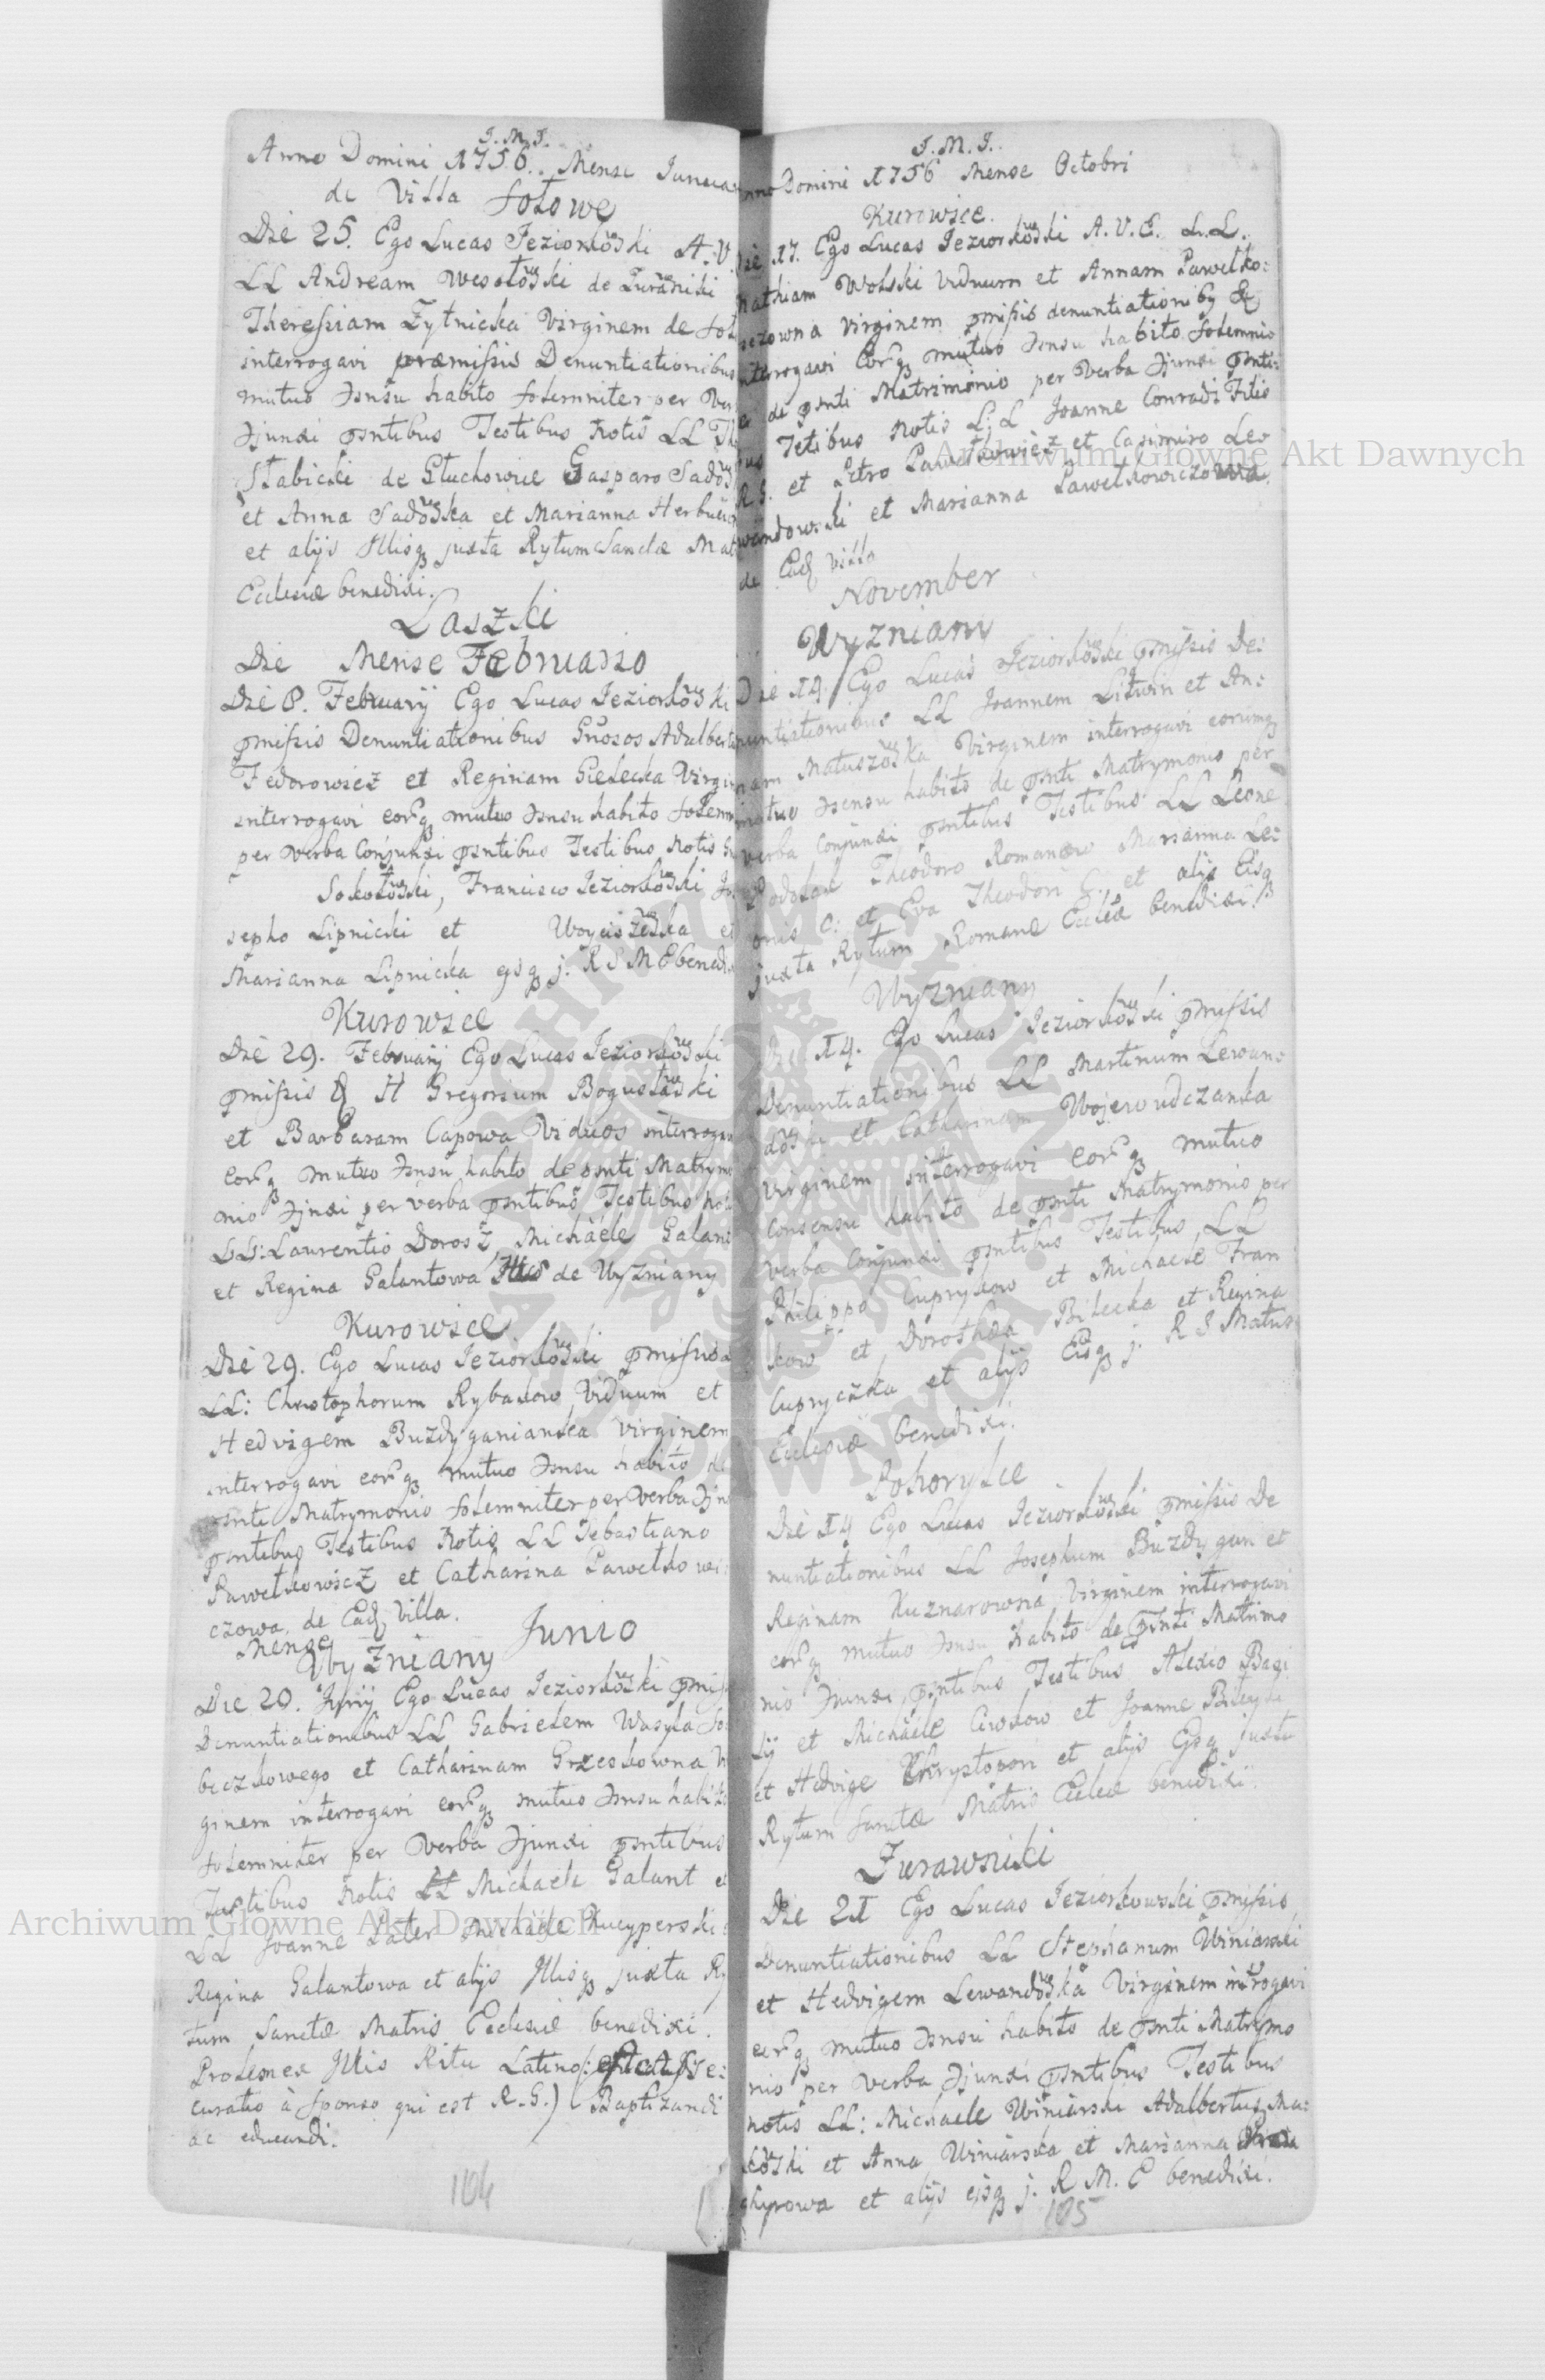 J. M. J.
Anno Domini 1756. Mense Janua
de Villa Solowe
Die 25. Ego Lucas Jeziorkowski A. V
LL Andream Wesołowski de Żurawniki
Theressiam Zytnicka Virginem de Sol
interrogavi præmissis Denuntiationibus
mutuo Jonsu habito solemniter per Ver
Jjunxi psntibus Testibus Notis LL Th
Słabicki de Głuchowice Gasparo Sadow
et Anna Sadowska et Marianna Herbu
et alijs Illisq juxta Rytum Sanctæ Mat
Ecclesiæ benedixi.
Laszki
Die Mense Februario
Die 8. February Ego Lucas Jeziorkowski
pmissis Denuntiationibus Gnosos Adalbert
Fedorowicz et Reginam Gielecka Virgin
interrogavi eorq mutuo Jonsu habito solem
per Verba Conjunxi psntibus Testibus Notis
Sokołowski, Francisco Jeziorkowski Jo
sepho Lipnicki et Woyciszewska et
Marianna Lipnicka ejsq j. R S M E bened
Kurowice
Die 29. February Ego Lucas Jeziorkowski
pmissis D H Gregorium Bogusławski
et Barbaram Capowa Viduos interrogav
eorq mutuo Jonsu habito de psnti Matrymo
nio Jjnxi per verba psntibus Testibus No
LL: Laurentio Dorosz, Michäele Galant
et Regina Galantowa de Wyzniany
Kurowice
Die 29. Ego Lucas Jeziorkowski pmissis
LL: Christophorum Rybakow Viduum et
Hedvigem Buzdyganianka Virginem
interrogavi eorq mutuo Jonsu habito de
psnti Matrymonio solemniter per Verba Jjn
psntibus Testibus Notis LL Sebastiano
Pawełkowicz et Catharina Pawełkowi:
czowa. de Ead Villa.
Mense Junio
Wyzniany
Die 20. Junij Ego Lucas Jeziorkowski pmis
Denuntiationibus LL Gabrielem Wasyla So
beczkowego et Catharinam Grzeskowna Vi
ginem interrogavi eorq mutuo Jonsu habito
solemniter per Verba Jjunxi psntibus
Testibus Notis LL Michaele Galant et
LL Joanne Pater Michäele Kucyperski
Regina Galantowa et alijs Illisq juxta Ry
tum Sanctæ Matris Ecclesiæ benedixi.
Prolemes Illis Ritu Latino
curatio à sponso qui est R. G.) Baptizandi
ac educandi.
104
J. M. J.
nno Domini 1756 Mense Octobri
Kurowice.
Die 17. Ego Lucas Jeziorkowski A. V. E. L. L.
Mathiam Wolski Viduum et Annam Pawełko:
wiczowna Virginem pmissis denuntiationibq &
interrogavi Eorq mutuo Jonsu habito solemnio
de psnti Matrimonio per Verba Jjunxi psnti:
bus Tetibus Notis L: L Joanne Conradi Filio
R G. et Petro Pawełkowicz et Casimiro Lev
wandowski et Marianna Pawełkowiczowna
de Ead villa
November
Wyzniany
Die 14. Ego Lucas Jeziorkowski pmissis De:
nuntiationibus LL Joannem Litwin et An:
nam Matuszowska Virginem interrogavi eorumq
mutuo Jsensu habito de psnti Matrymonio per
verba Conjunxi psntibus Testibus LL Leone
Podolak Theodoro Romanow Marianna Le:
onis C: et Eva Theodori C: et alijs Eisq
juxta Rytum Romanæ Ecclæ benedixi.
Wyzniany
Die 14. Ego Lucas Jeziorkowski pmissis
Denuntiationibus LL Martinum Lewan:
dowski et Catharinam Wojewudczanka
Virginem interrogavi eorq mutuo
Consensu habito de psnti Matrymonio per
Verba Conjunxi psntibus Testibus LL
Philippo Cuprykow et Michaele Fran
kow et Dorothea Bilecka et Regina
Cupryczka et alijs Eisq j. R S Matris
Ecclesiæ benedixi.
Pohorylce
Die 14 Ego Lucas Jeziorkowski pmissis De
nuntiationibus LL Josephum Buzdygan et
Reginam Kuznarowna Virginem interrogavi
eorq mutuo Jonsu habito de psnti Matrimo
nio Jjunxi psntibus Testibus Alexio Bazi
lij et Michäele Cwokow et Joanne
et Hedvige Chrystopori et alijs Ejsq juxta
Rytum Sanctæ Matris Ecclæ benedixi.
Żurawniki
Die 21 Ego Lucas Jeziorkowski pmissis
Denuntiationibus LL Stephanum Winiarski
et Hedvigem Lewandowska Virginem intrrogavi
eorq mutuo Jonsu habito de psnti Matrymo
nio per Verba Jjunxi psntibus Testibus
notis LL: Michaele Winiarski Adalbertus Ma:
kowski et Anna Winiarska et Marianna
chyrowa et alijs ejsq j. R M. E benedixi.
105
Archiwum Głowne Akt Dawnych
Archiwum Głowne Akt Dawnych